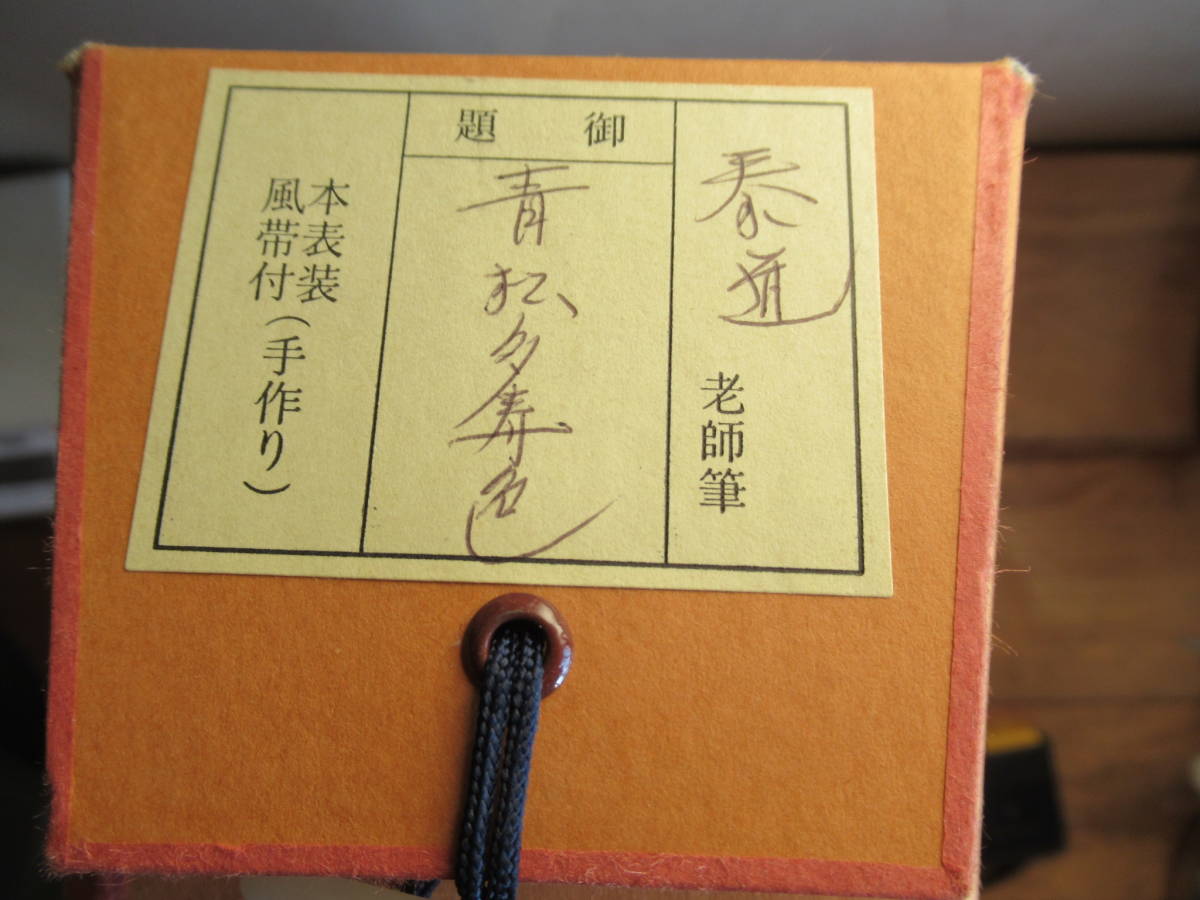 泰道 老師筆
御題
青松多寿色
本表装
風帯付(手作り)